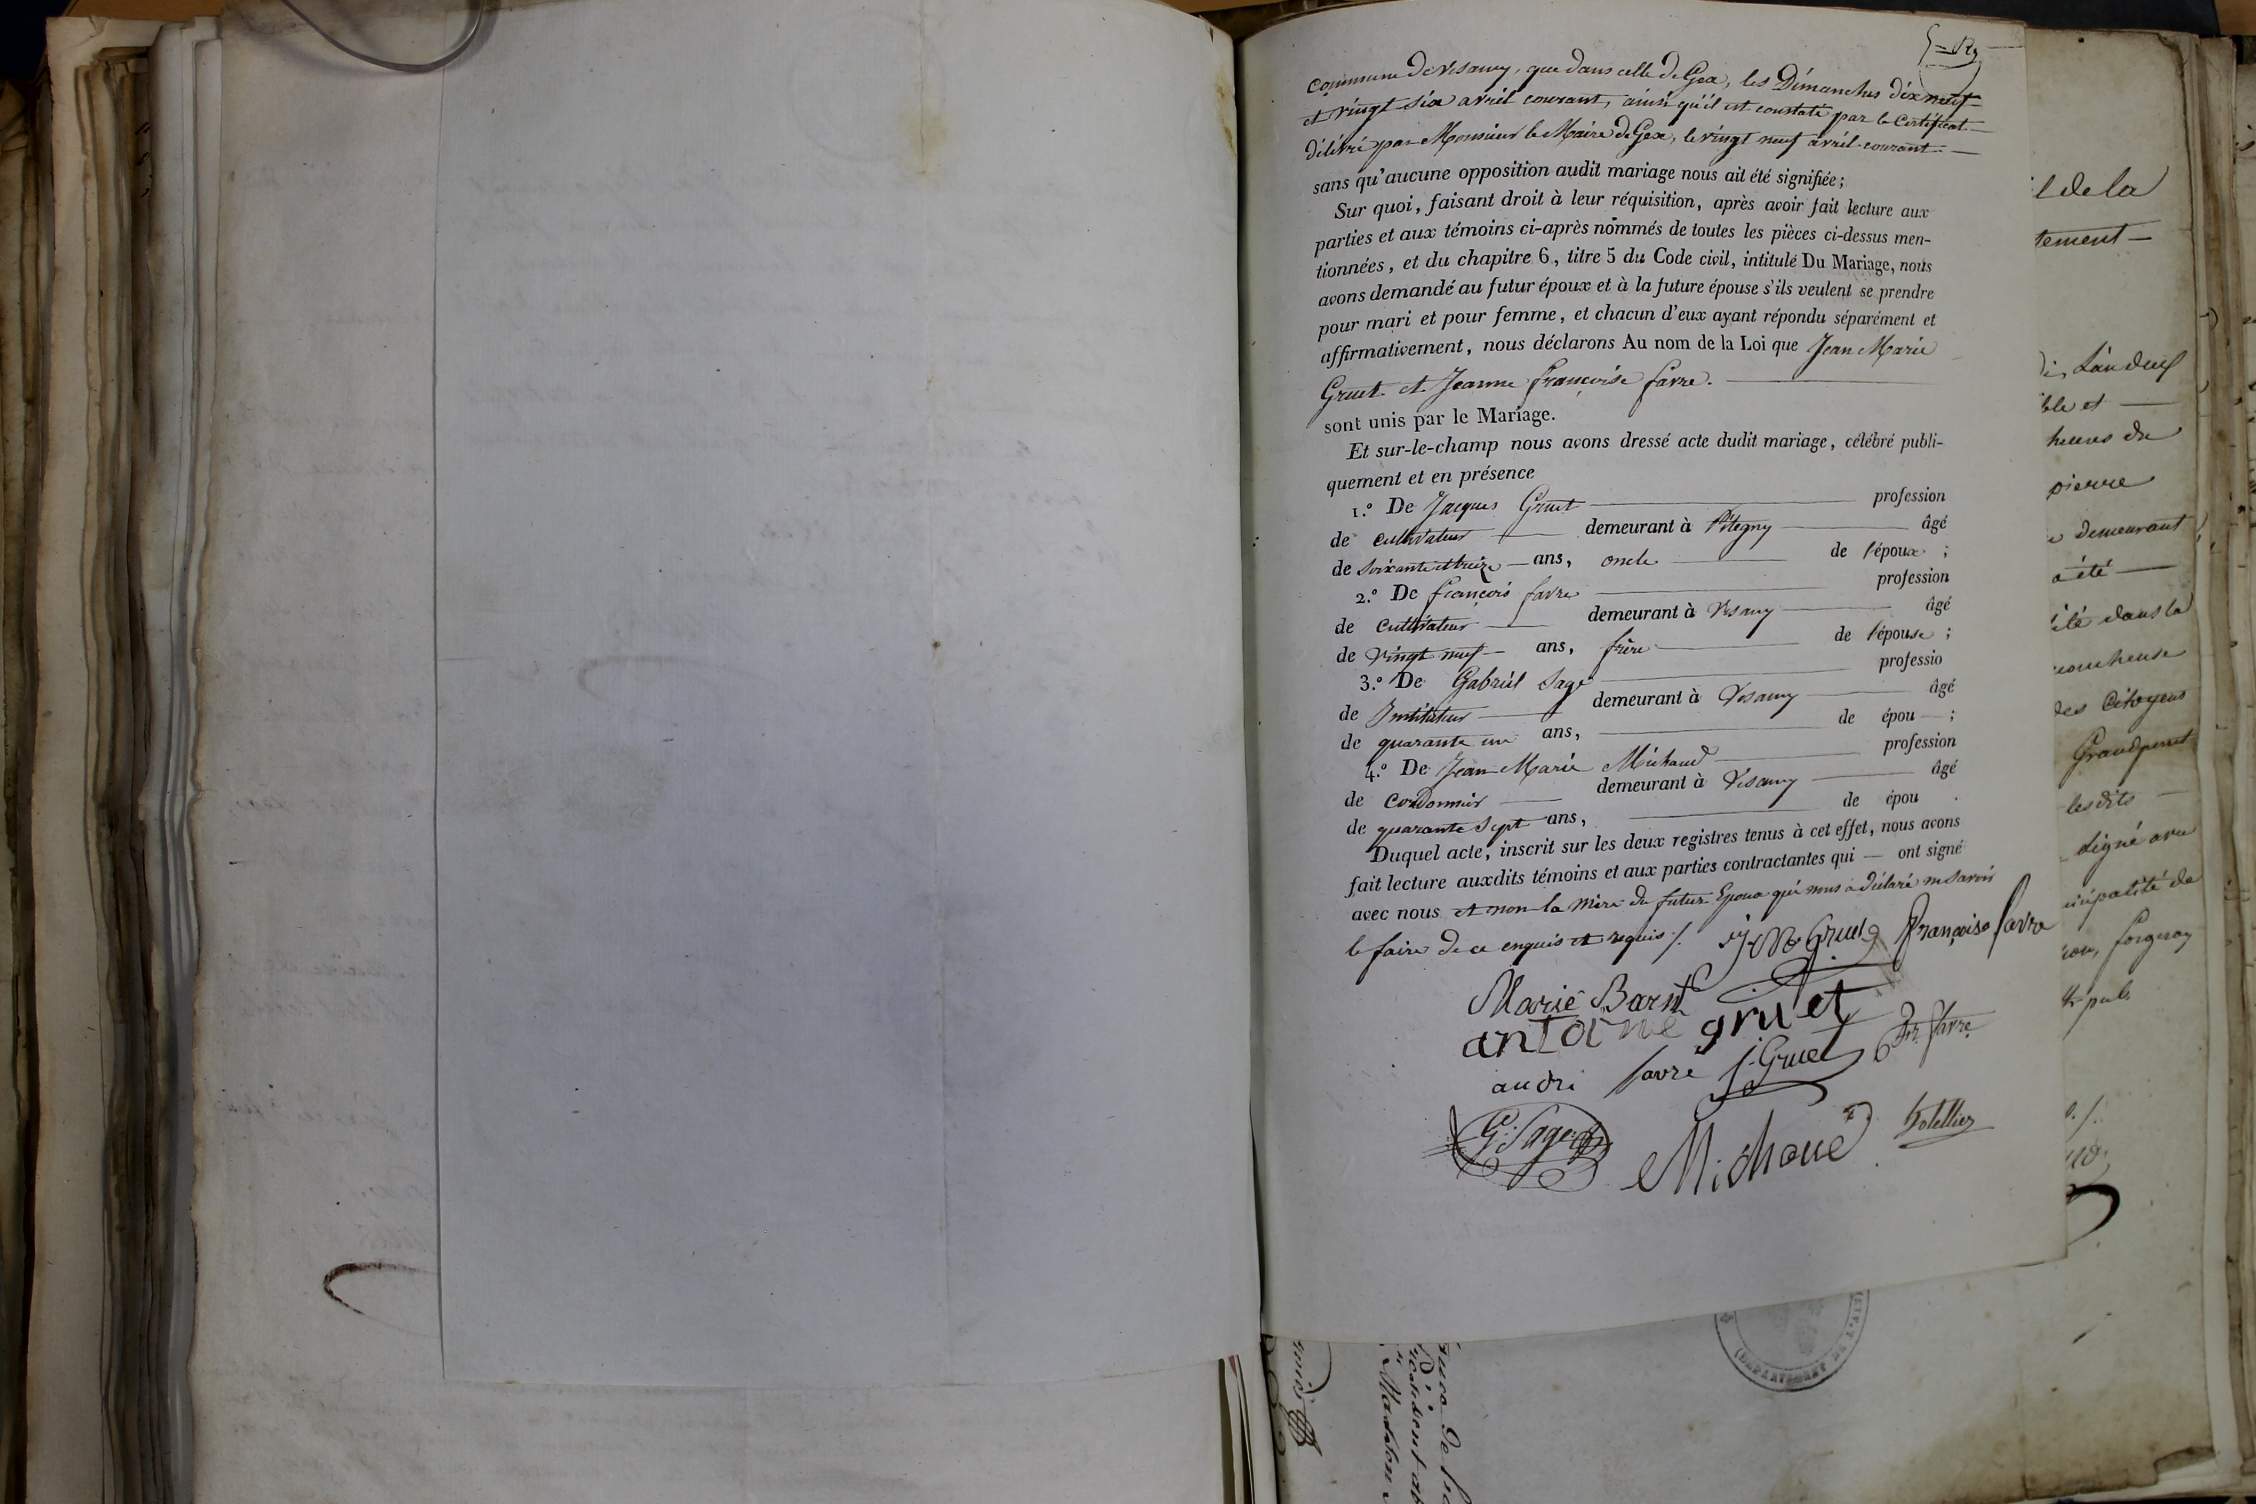 commune de Vesancy, que dans celle de Gex, les Dimanches dix neuf
et vingt six avril courant, ainsi qu'il est constaté par le certificat
délivré par Monsieur le Maire de Gex, le vingt neuf avril courant.
sans qu'aucune opposition audit mariage nous ait été signifiée;
Sur quoi, faisant droit à leur réquisition, après avoir fait lecture aux
parties et aux témoins ci-après nommés de toutes les pièces ci-dessus men-
tionnées, et du chapitre 6, titre 5 du Code civil, intitulé Du Mariage, nous
avons demandé au futur époux et à la future épouse s'ils veulent se prendre
pour mari et pour femme, et chacun d'eux ayant répondu séparément et
affirmativement, nous déclarons Au nom de la Loi que Jean Marie
Gruet et Jeanne françoise favre.
sont unis par le Mariage.
Et sur-le-champ nous avons dressé acte dudit mariage, célébré publi-
quement et en présence
1.º De Jacques Gruet profession
de cultivateur demeurant à Pitegny âgé
de soixante et treize ans, oncle de l'époux ;
2.º De françois favre profession
de cultivateur demeurant à Vesancy âgé
de vingt neuf ans, frère de l'épouse ;
3.º De Gabriel Sage professio
de Instituteur demeurant à Vesancy âgé
de quarante un ans, de épou ;
4.º De Jean Marie Michaud profession
de cordonnier demeurant à Vesancy âgé
de quarante sept ans, de épou .
Duquel acte, inscrit sur les deux registres tenus à cet effet, nous avons
fait lecture auxdits témoins et aux parties contractantes qui — ont signé
avec nous et non la mère du futur Epoux qui nous a déclaré ne savoir
le faire de ce enquis et requis /.
J M Gruet françoise favre
Marie
antoine gruet
andri favre J. Gruet fr. favre
G. Sage
Michaud
il de la
tement
ble et
heures du
pierre
demeurant
a été
été dans la
des Citoyens
Grandperret
les dits
signé avec